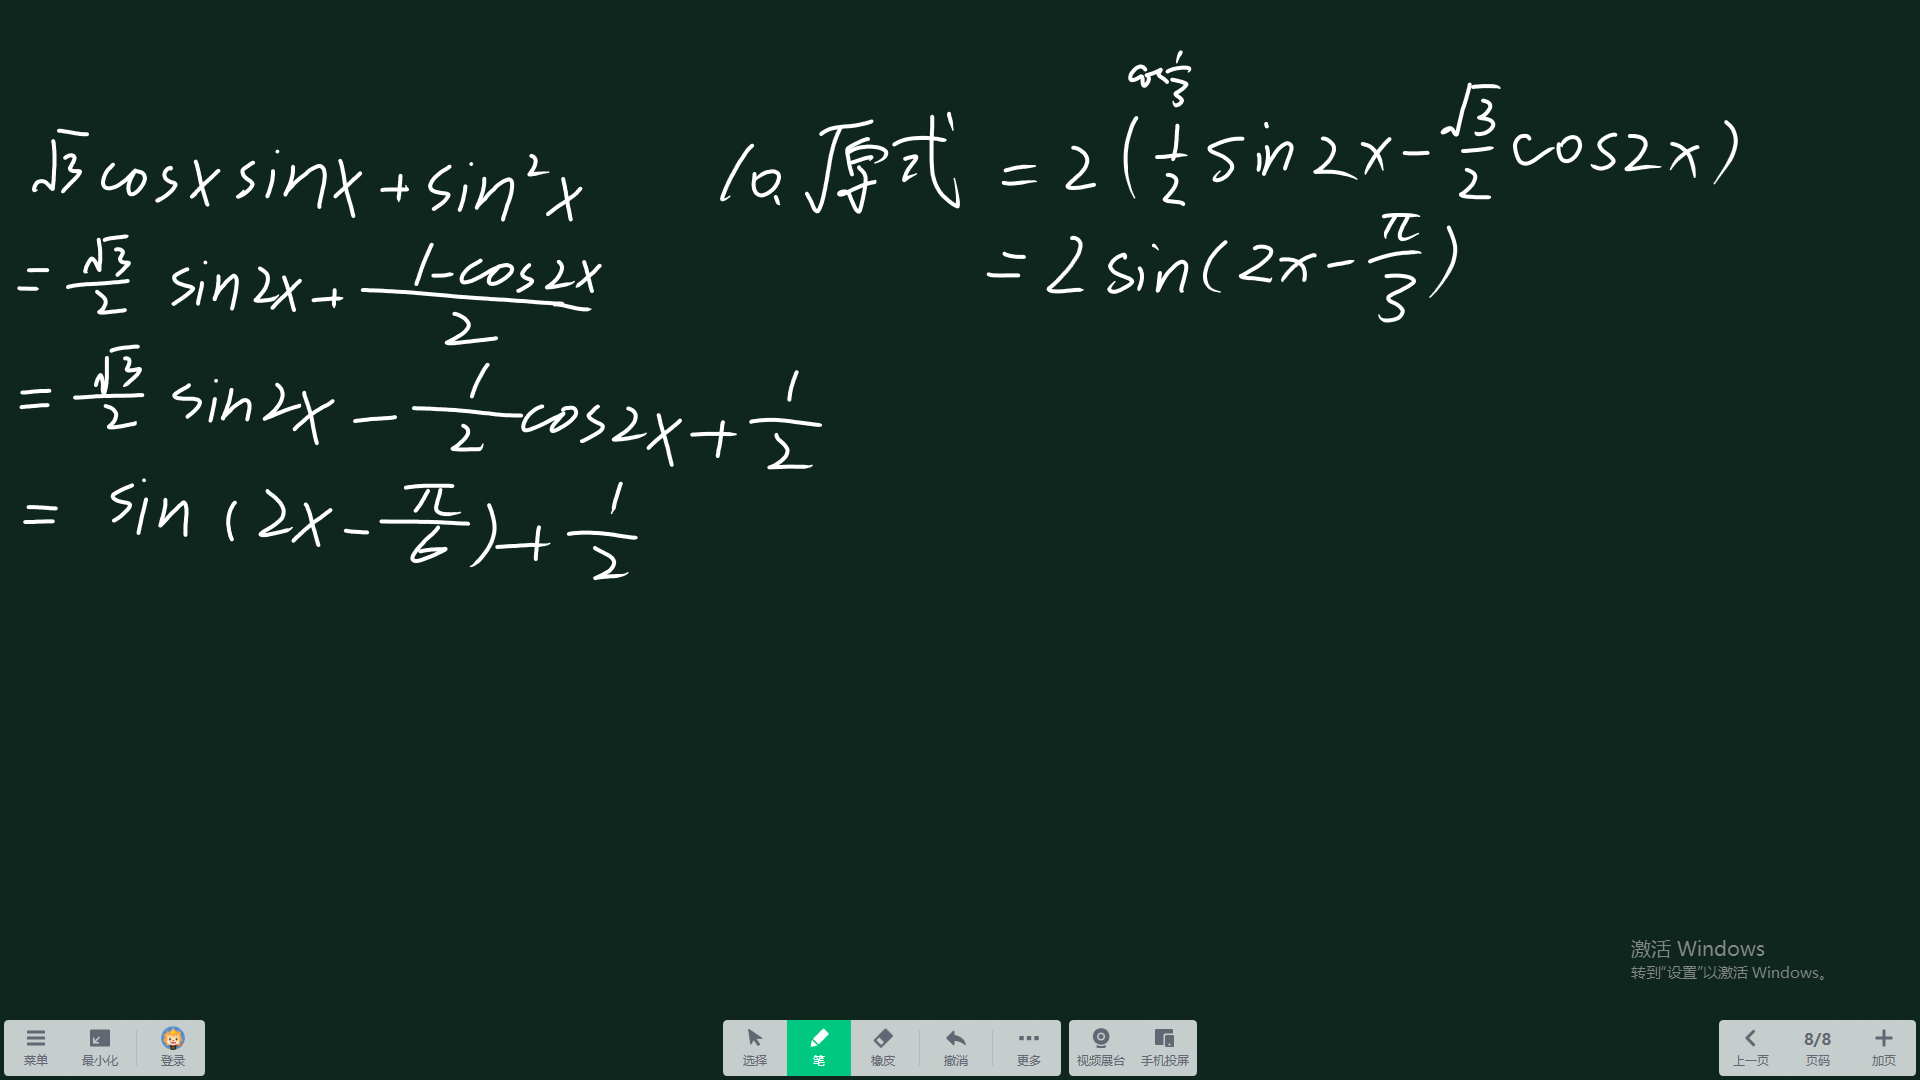 √3 cosx sinx + sin²x
= √3/2 sin2x + (1-cos2x)/2
= √3/2 sin2x - 1/2 cos2x + 1/2
= sin(2x - π/6) + 1/2
10. 原式 = 2(1/2 sin2x - √3/2 cos2x)
= 2 sin(2x - π/3)
激活 Windows
转到“设置”以激活 Windows。
菜单 最小化 登录 选择 笔 橡皮 撤消 更多 视频展台 手机投屏 上一页 8/8 页码 加页